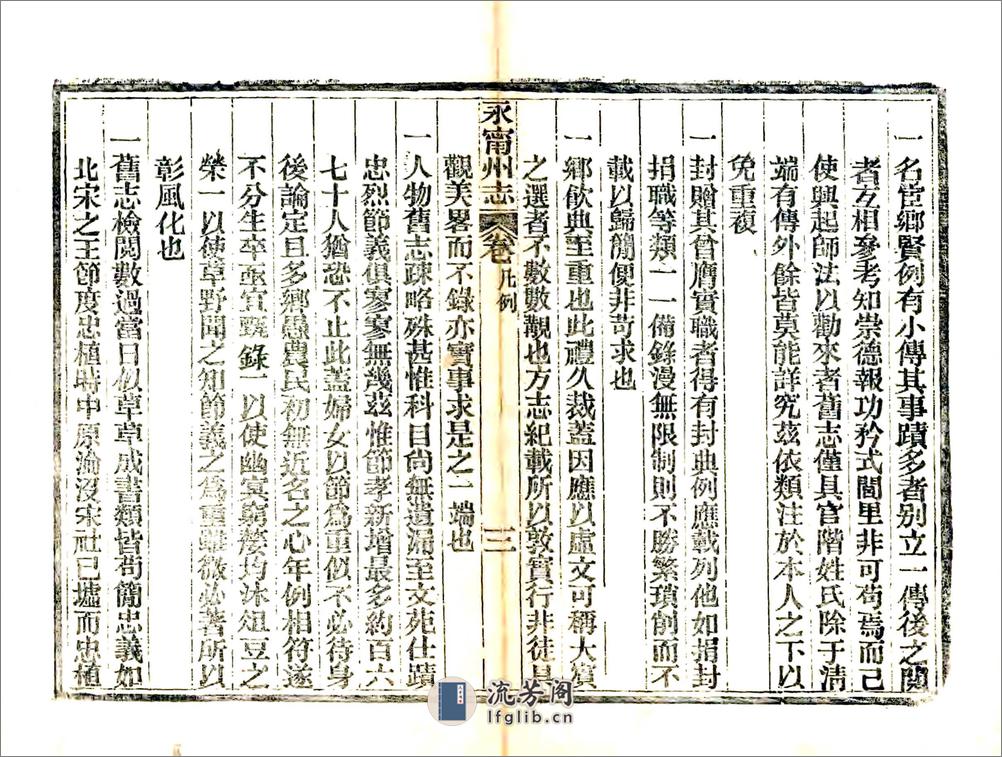 一名宦鄉賢例有小傳其事蹟多者别立一傳後之閱
者互相參考知崇德報功矜式閭里非可苟焉而已
使興起師法以勸來者舊志僅具官階姓氏除于清
端有傳外餘皆莫能詳究茲依類注於本人之下以
免重複
一封贈其曾膺實職者得有封典例應載列他如捐封
捐職等類一一備錄漫無限制則不勝繁瑣削而不
載以歸簡便非苛求也
一鄉飲典至重也此禮久裁蓋因應以虛文可稱大賔
之選者不數數觀也方志紀載所以敦實行非徒具
永甯州志 卷 凡例 三
觀美畧而不錄亦實事求是之一端也
一人物舊志疎略殊甚惟科目尚無遺漏至文苑仕蹟
忠烈節義俱寥寥無幾茲惟節孝新增最多約百六
七十人猶恐不止此蓋婦女以節爲重似不必待身
後論定且多鄉愚農民初無近名之心年例相符遂
不分生卒亟宜甄錄一以使幽寃窮嫠均沐俎豆之
榮一以使草野聞之知節義之爲重雖微必著所以
彰風化也
一舊志檢閱數過當日似草草成書類皆苟簡忠義如
北宋之王節度忠植時中原淪沒宋社已墟而忠植
流芳阁
lfglib.cn